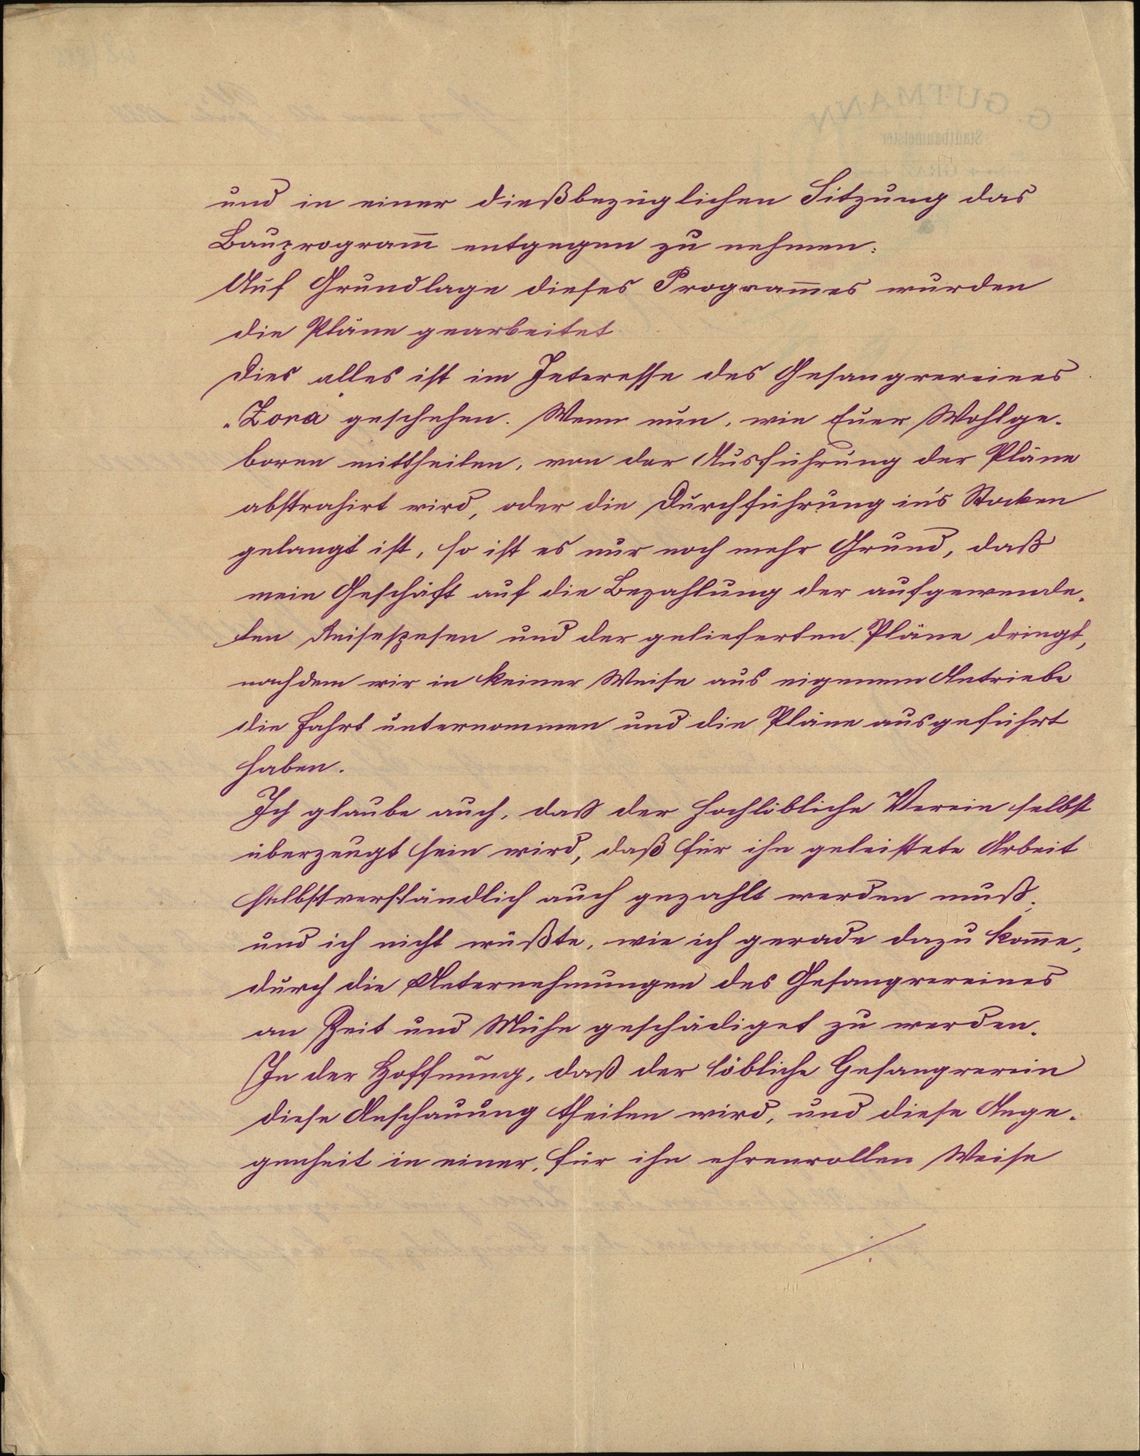 und in einer dießbezüglichen Sitzung das
Bauprogram̅ entgegen zu nehmen.
Auf Grundlage dieses Program̅es wurden
die Pläne gearbeitet
Dies alles ist im Interesse des Gesangvereines
„Zora" geschehen. Wenn nun, wie Euer Wohlge-
boren mittheilen, von der Ausführung der Pläne
abstrahirt wird, oder die Durchführung in's Stocken
gelangt ist, so ist es nur noch mehr Grund, daß
mein Geschäft auf die Bezahlung der aufgewende-
ten Reisespesen und der gelieferten Pläne dringt,
nachdem wir in keiner Weise aus eigenem Antriebe
die Fahrt unternommen und die Pläne ausgeführt
haben.
Ich glaube auch, daß der hochlöbliche Verein selbst
überzeugt sein wird, daß für ihn geleistete Arbeit
selbstverständlich auch gezahlt werden muß,
und ich nicht wüßte, wie ich gerade dazu kom̅e,
durch die Unternehmungen des Gesangvereines
an Zeit und Mühe geschädiget zu werden.
In der Hoffnung, daß der löbliche Gesangverein
diese Anschauung theilen wird, und diese Ange-
genheit in einer, für ihn ehrenvollen Weise
./.
G. GUTMANN
Stadtbaumeister
GRAZ